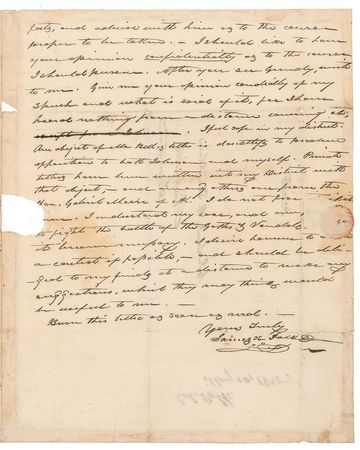 facts, and advise with him as to the course
proper to be taken. – I should like to have
your opinion confidentially as to the course
I should pursue. After you see Grundy, write
to me. Give me your opinion candidly of my
speech and what is said of it, for I have
heard nothing from a distance concerning it,
I feel safe in my district.
One object of Mr Bell's letter is doubtless to produce
opposition to both Johnson and myself. Private
letters have been written into my District with
that object, – and among others one from the
Hon. Gabriel Moore of Al. I do not fear
me. I understand my case, and am
to fight the battle of the Goths & Vandals
it become necessary. I desire however to
a contest if possible, – and should be obli-
ged to my friends at a distance to make any
suggestions, which they may think would
be useful to me. –
Burn this letter as soon as read. –
Yours Truly
James K Polk